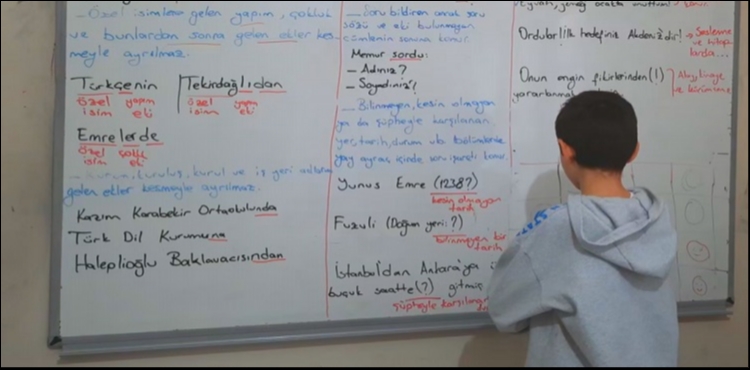 _ Özel isimlere gelen yapım, çokluk
ve bunlardan sonra gelen ekler kes-
meyle ayrılmaz.
Türkçenin
özel yapım
isim eki
Tekirdağlıdan
özel yapım
isim eki
Emrelerde
özel çokluk
isim eki
_ Kurum, kuruluş, kurul ve iş yeri adlarına
gelen ekler kesmeyle ayrılmaz.
Kazım Karabekir Ortaokulunda
Türk Dil Kurumuna
Haleplioğlu Baklavacısından
_ Soru bildiren ancak soru
sözü ve eki bulunmayan
cümlenin sonuna konur.
Memur sordu:
_ Adınız?
_ Soyadınız?
_ Bilinmeyen, kesin olmayan
ya da şüpheyle karşılanan
yer, tarih, durum vb
yay ayraç içinde soru işareti konur.
Yunus Emre (1238?)
kesin olmayan
tarih
Fuzuli (Doğum yeri:?)
bilinmeyen bir
tarih
İstanbul'dan Ankara'ya
buçuk saatte(?) gitmiş
şüpheyle karşılanan
Ordular! İlk hedefiniz Akdenizdir! → Seslenme
ve hitap
larda...
Onun engin fikirlerinden(!)
Alay, kinaye
ve küçümseme